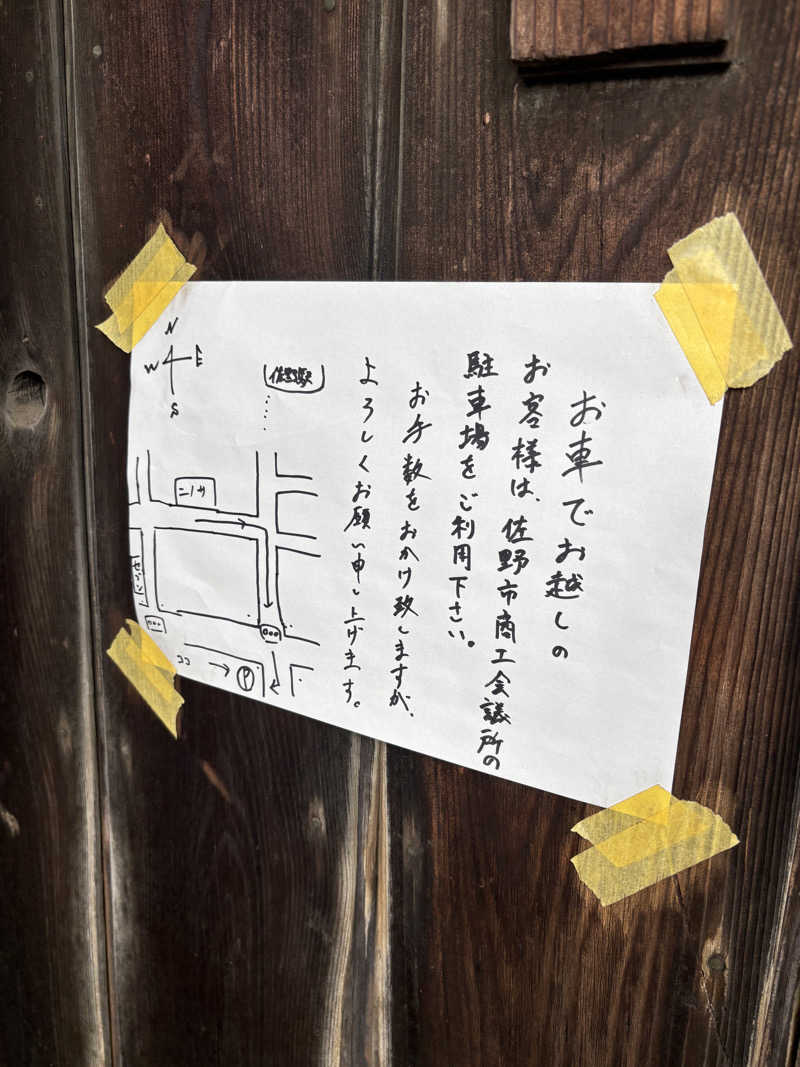 お車でお越しの
お客様は、佐野市商工会議所の
駐車場をご利用下さい。
お手数をおかけ致しますが、
よろしくお願い申し上げます。
N
W
E
S
佐野駅
ココ
P